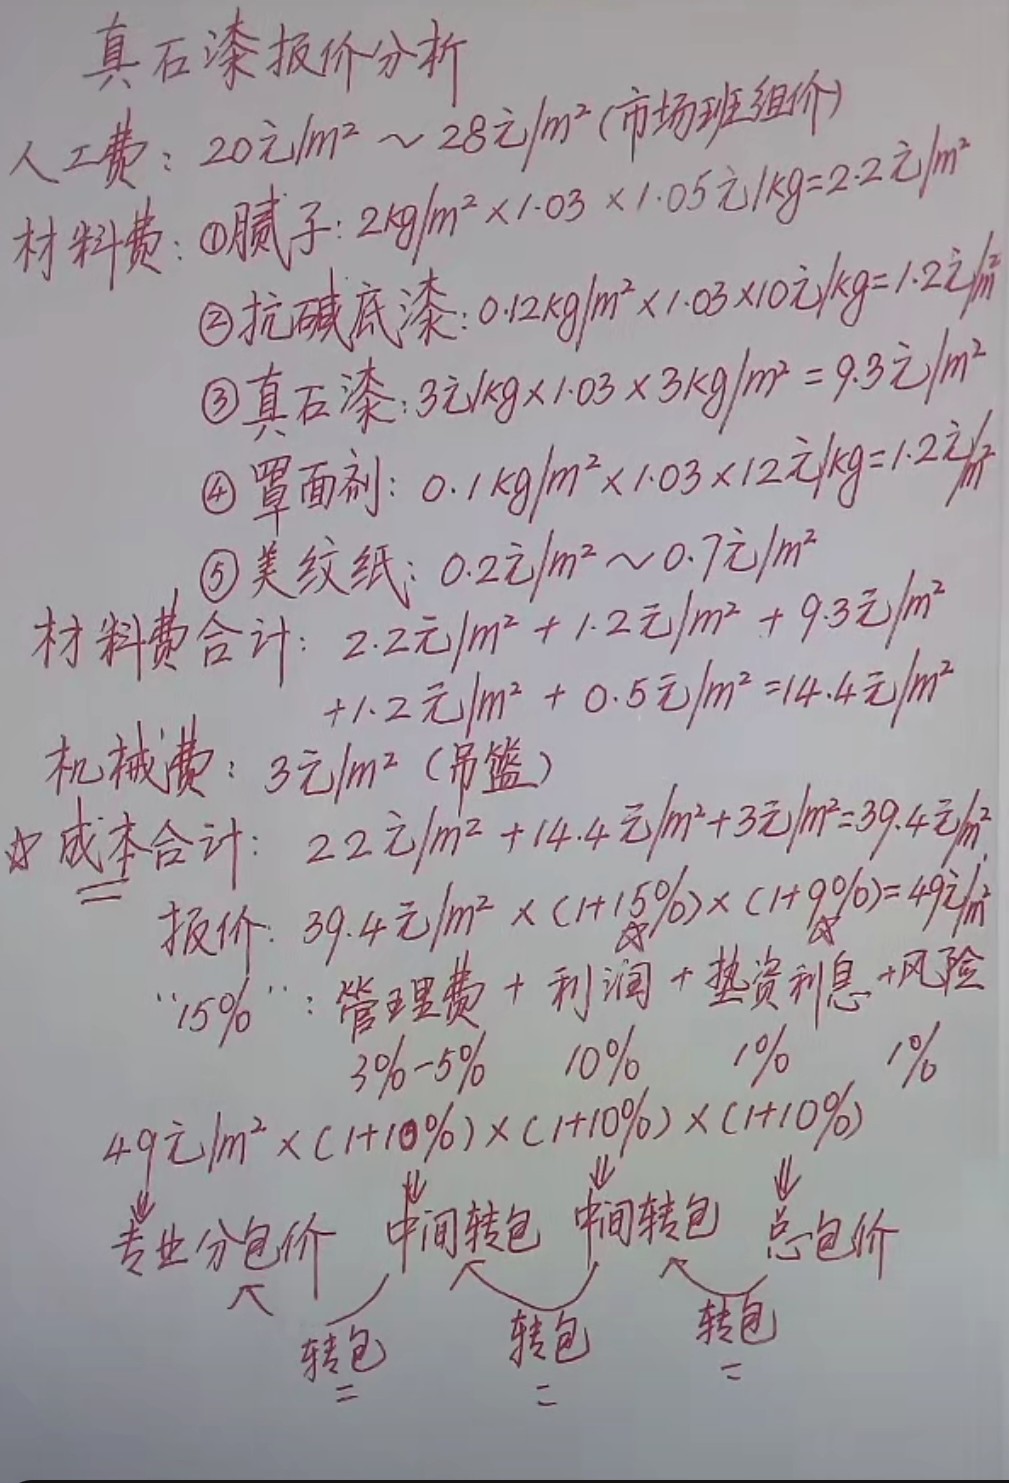 真石漆报价分析
人工费: 20元/m² ~ 28元/m² (市场班组价)
材料费: ①腻子: 2kg/m² × 1.03 × 1.05元/kg=2.2元/m²
②抗碱底漆: 0.12kg/m² × 1.03 × 10元/kg=1.2元/m²
③真石漆: 3元/kg × 1.03 × 3kg/m² = 9.3元/m²
④罩面剂: 0.1kg/m² × 1.03 × 12元/kg=1.2元/m²
⑤美纹纸: 0.2元/m² ~ 0.7元/m²
材料费合计: 2.2元/m² + 1.2元/m² + 9.3元/m²
+1.2元/m² + 0.5元/m² =14.4元/m²
机械费: 3元/m² (吊篮)
☆成本合计: 22元/m² +14.4元/m²+3元/m²=39.4元/m²
报价: 39.4元/m² × (1+15%) × (1+9%)=49元/m²
☆ ☆
"15%": 管理费 + 利润 + 垫资利息 +风险
3%-5% 10% 1% 1%
49元/m² × (1+10%) × (1+10%) × (1+10%)
专业分包价 中间转包 中间转包 总包价
转包 转包 转包